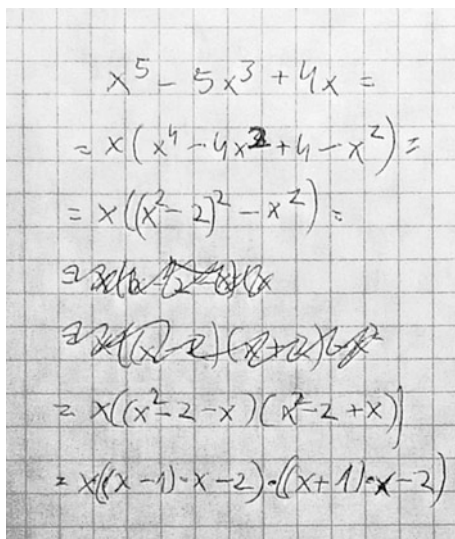 x⁵ - 5x³ + 4x =
= x(x⁴ - 4x² + 4 - x²) =
= x((x² - 2)² - x²) =
= x((x² - 2 - x)(x² - 2 + x))
= x((x - 1)·x - 2)·((x + 1)·x - 2)